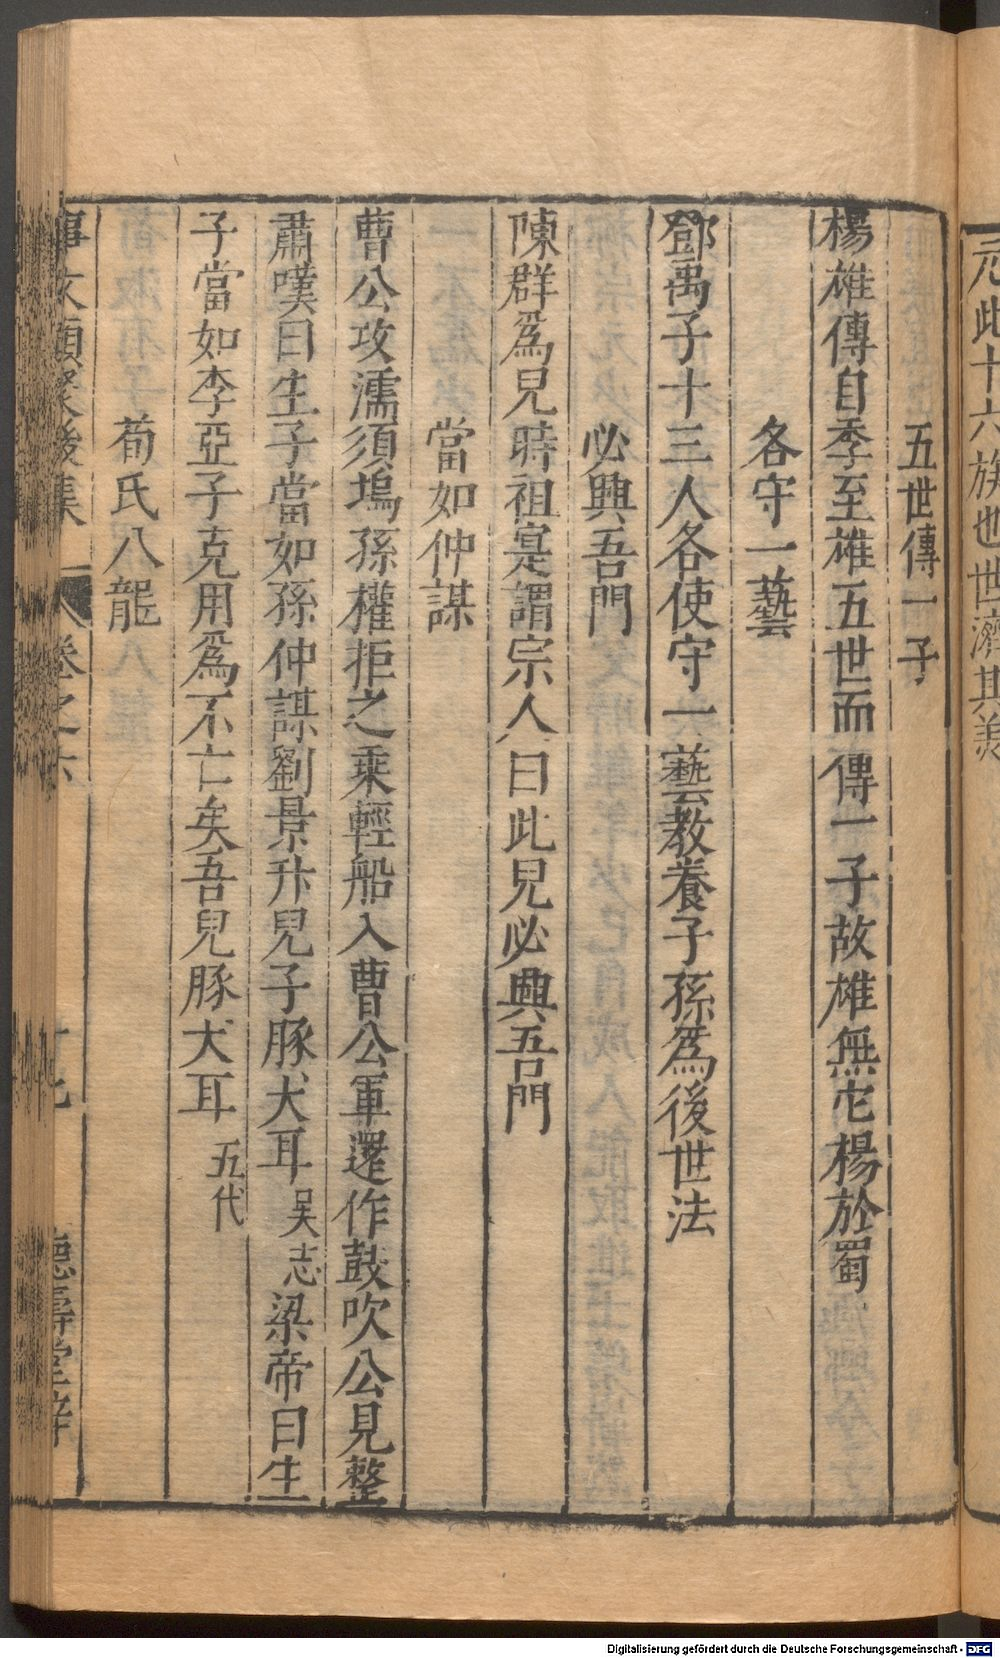 元此十六族也世濟其美
五世傳一子
楊雄傳自季至雄五世而傳一子故雄無它楊於蜀
各守一藝
鄧禹子十三人各使守一藝教養子孫爲後世法
必興吾門
陳群爲兒時祖寔謂宗人曰此兒必興吾門
當如仲謀
曹公攻濡須塢孫權拒之乗輕船入曹公軍還作鼓吹公見整
肅嘆曰生子當如孫仲謀劉景升兒子豚犬耳吴志梁帝曰生
子當如李亞子克用爲不亡矣吾兒豚犬耳五代
荀氏八龍
事文類聚後集 卷之六
德壽堂梓
Digitalisierung gefördert durch die Deutsche Forschungsgemeinschaft - DFG